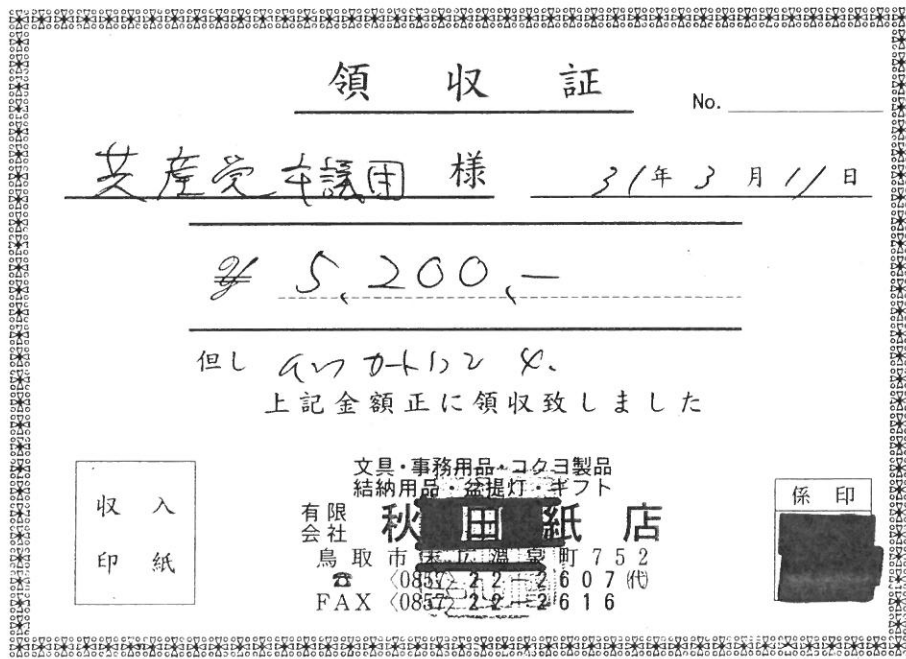 領収証
No.
共産党市議団 様
31年3月11日
¥ 5,200,-
但し カートリッジ 4.
上記金額正に領収致しました
収入
印紙
文具・事務用品・コクヨ製品
結納用品・盆提灯・ギフト
有限会社 秋田紙店
鳥取市末広温泉町752
☎ 〈0857〉22-2607㈹
FAX 〈0857〉22-2616
係印